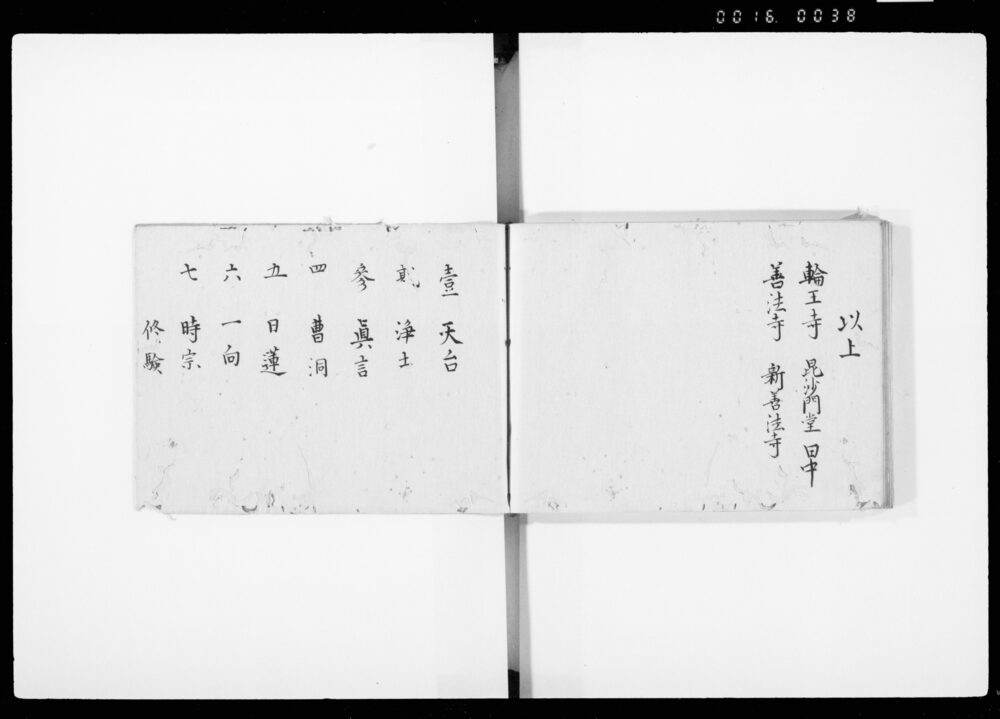 0016. 0038
以上
輪王寺 毘沙門堂 日中
善法寺 新善法寺
壹 天台
貳 浄土
參 眞言
四 曹洞
五 日蓮
六 一向
七 時宗
修験